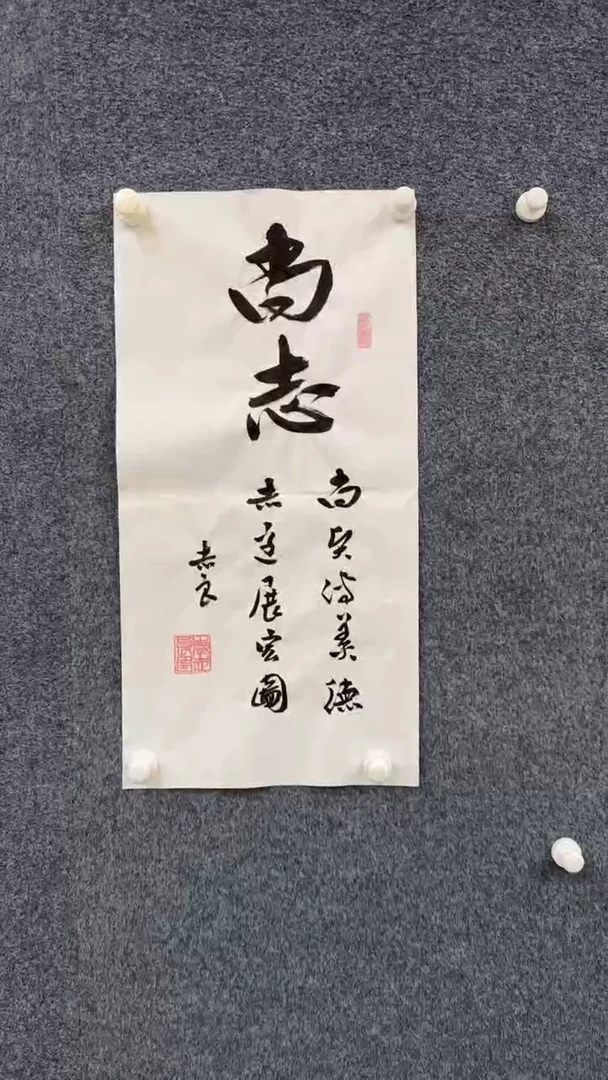 尚志
尚贤传美德
志远展宏圖
志良